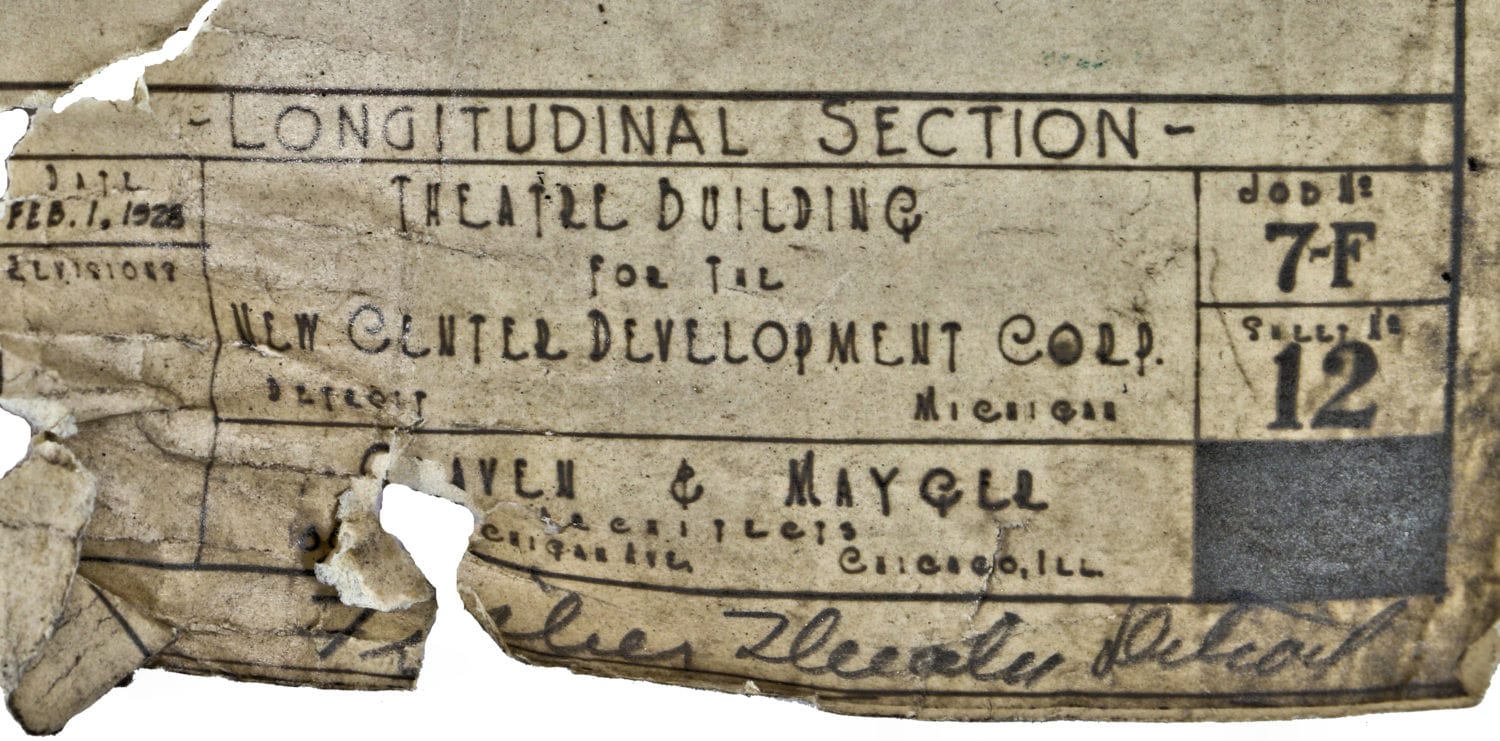 -LONGITUDINAL SECTION-
DATE
FEB. 1, 1928
REVISIONS
THEATRE BUILDING
FOR THE
NEW CENTER DEVELOPMENT CORP.
DETROIT MICHIGAN
JOB No
7-F
SHEET No
12
AVEN & MAYGER
ARCHITECTS
CHIGAN AVE. CHICAGO, ILL.
sher Theater Detroit